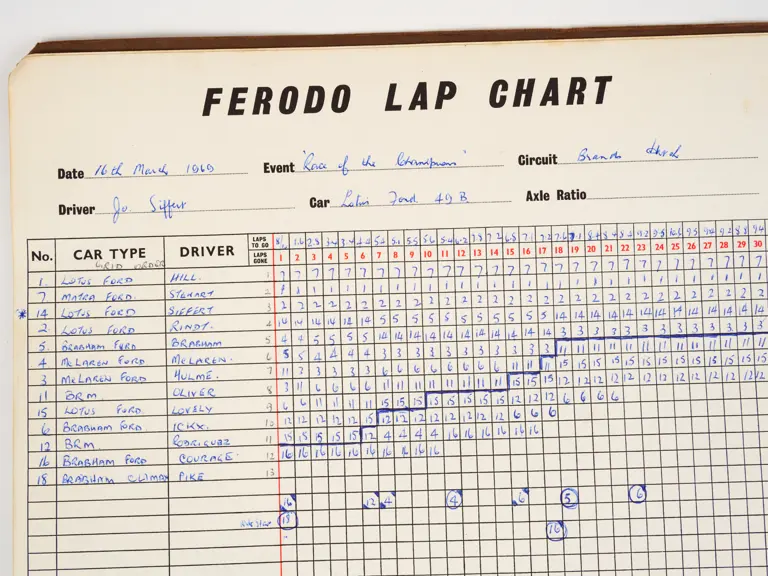 FERODO LAP CHART
Date 16th March 1969 Event "Race of the Champions" Circuit Brands Hatch
Driver Jo Siffert Car Lotus Ford 49 B Axle Ratio
No. CAR TYPE DRIVER LAPS TO GO
GRID ORDER LAPS GONE 1 2 3 4 5 6 7 8 9 10 11 12 13 14 15 16 17 18 19 20 21 22 23 24 25 26 27 28 29 30
1 LOTUS FORD HILL. 1 7 7 7 7 7 7 7 7 7 7 7 7 7 7 7 7 7 7 7 7 7 7 7 7 7 7 7 7 7 7
7 MATRA FORD. STEWART 2 1 1 1 1 1 1 1 1 1 1 1 1 1 1 1 1 1 1 1 1 1 1 1 1 1 1 1 1 1 1
* 14 LOTUS FORD SIFFERT 3 2 2 2 2 2 2 2 2 2 2 2 2 2 2 2 2 2 2 2 2 2 2 2 2 2 2 2 2 2 2
2 LOTUS FORD RINDT. 4 14 14 14 14 14 14 5 5 5 5 5 5 5 5 5 5 5 14 14 14 14 14 14 14 14 14 14 14 14 14
5. BRABHAM FORD BRABHAM 5 4 4 5 5 5 5 14 14 14 14 14 14 14 14 14 14 14 3 3 3 3 3 3 3 3 3 3 3 3 3
4 McLAREN FORD McLAREN. 6 5 5 4 4 4 4 3 3 3 3 3 3 3 3 3 3 3 11 11 11 11 11 11 11 11 11 11 11 11 11
3 McLAREN FORD HULME. 7 11 3 3 3 3 3 6 6 6 6 6 11 11 15 15 15 15 15 15 15 15 15 15 15
11 BRM. OLIVER 8 3 11 6 6 6 6 11 11 11 11 11 11 11 11 15 15 15 12 12 12 12 12 12 12 12 12 12 12 12 12
15 LOTUS FORD. LOVELY 9 6 6 11 11 11 11 15 15 15 15 15 15 15 15 12 12 12 6 6 6 6
6 BRABHAM FORD. ICKX. 10 12 12 12 12 12 15 12 12 12 12 12 12 12 12 6 6 6
12 BRM RODRIGUEZ 11 15 15 15 15 15 12 4 4 4 4 16 16 16 16 16 16
16 BRABHAM FORD COURAGE. 12 16 16 16 16 16 16 16 16 16 16
18 BRABHAM CLIMAX PIKE 13
16 12 4 4 6 5 6
18 16